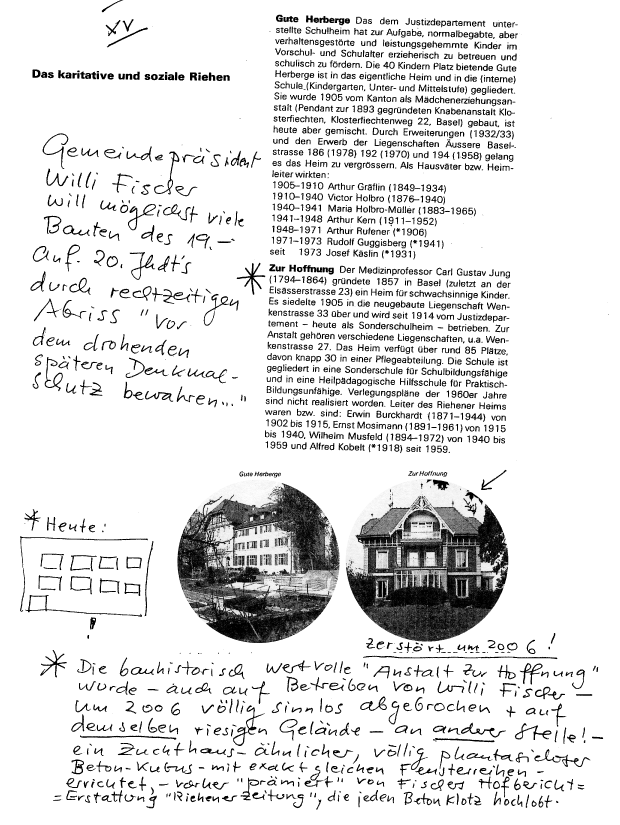 XV
Das karitative und soziale Riehen
Gemeindepräsident
Willi Fischer
will möglichst viele
Bauten des 19.–
Anf. 20. Jhdt's
durch rechtzeitigen
Abriss "vor
dem drohenden
späteren Denkmal-
schutz bewahren..."
Gute Herberge Das dem Justizdepartement unter-
stellte Schulheim hat zur Aufgabe, normalbegabte, aber
verhaltensgestörte und leistungsgehemmte Kinder im
Vorschul- und Schulalter erzieherisch zu betreuen und
schulisch zu fördern. Die 40 Kindern Platz bietende Gute
Herberge ist in das eigentliche Heim und in die (interne)
Schule (Kindergarten, Unter- und Mittelstufe) gegliedert.
Sie wurde 1905 vom Kanton als Mädchenerziehungsan-
stalt (Pendant zur 1893 gegründeten Knabenanstalt Klo-
sterfiechten, Klosterfiechtenweg 22, Basel) gebaut, ist
heute aber gemischt. Durch Erweiterungen (1932/33)
und den Erwerb der Liegenschaften Äussere Basel-
strasse 186 (1978) 192 (1970) und 194 (1958) gelang
es das Heim zu vergrössern. Als Hausväter bzw. Heim-
leiter wirkten:
1905–1910 Arthur Gräflin (1849–1934)
1910–1940 Victor Holbro (1876–1940)
1940–1941 Maria Holbro-Müller (1883–1965)
1941–1948 Arthur Kern (1911–1952)
1948–1971 Arthur Rufener (*1906)
1971–1973 Rudolf Guggisberg (*1941)
seit 1973 Josef Käslin (*1931)
* Zur Hoffnung Der Medizinprofessor Carl Gustav Jung
(1794–1864) gründete 1857 in Basel (zuletzt an der
Elsässerstrasse 23) ein Heim für schwachsinnige Kinder.
Es siedelte 1905 in die neugebaute Liegenschaft Wen-
kenstrasse 33 über und wird seit 1914 vom Justizdepar-
tement – heute als Sonderschulheim – betrieben. Zur
Anstalt gehören verschiedene Liegenschaften, u.a. Wen-
kenstrasse 27. Das Heim verfügt über rund 85 Plätze,
davon knapp 30 in einer Pflegeabteilung. Die Schule ist
gegliedert in eine Sonderschule für Schulbildungsfähige
und in eine Heilpädagogische Hilfsschule für Praktisch-
Bildungsunfähige. Verlegungspläne der 1960er Jahre
sind nicht realisiert worden. Leiter des Riehener Heims
waren bzw. sind: Erwin Burckhardt (1871–1944) von
1902 bis 1915, Ernst Mosimann (1891–1961) von 1915
bis 1940, Wilhelm Musfeld (1894–1972) von 1940 bis
1959 und Alfred Kobelt (*1918) seit 1959.
Gute Herberge
Zur Hoffnung
* Heute:
zerstört um 2006!
* Die bauhistorisch wertvolle "Anstalt zur Hoffnung"
wurde – auch auf Betreiben von Willi Fischer –
um 2006 völlig sinnlos abgebrochen + auf
demselben riesigen Gelände – an anderer Stelle! –
ein Zuchthaus-ähnlicher, völlig phantasieloser
Beton-Kubus – mit exakt gleichen Fensterreihen –
errichtet, – vorher "prämiert" von Fischers Hofbericht=
=Erstattung "Riehener Zeitung", die jeden Betonklotz hochlobt.